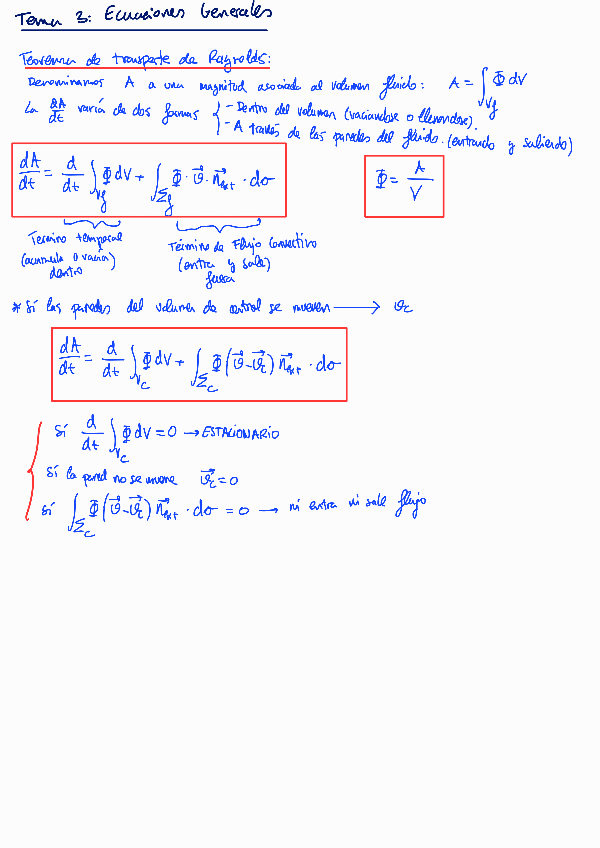 Tema 3: Ecuaciones Generales
Teorema de transporte de Raynolds:
Denominamos A a una magnitud asociada al volumen fluido: A = ∫_{V_f} Φ dV
La dA/dt varía de dos formas { - Dentro del volumen (vaciandose o llenandose).
- A través de las paredes del fluido. (entrando y saliendo)
dA/dt = d/dt ∫_{V_f} Φ dV + ∫_{Σ_f} Φ · v⃗ · n⃗_ext · dσ
Φ = A/V
Término temporal
(acumula o varía)
dentro
Término de Flujo Convectivo
(entra y sale)
fuera
* Sí las paredes del volumen de control se mueven ⟶ v_c
dA/dt = d/dt ∫_{V_c} Φ dV + ∫_{Σ_c} Φ (v⃗ - v⃗_c) n⃗_ext · dσ
Sí d/dt ∫_{V_c} Φ dV = 0 → ESTACIONARIO
Sí la pared no se mueve v⃗_c = 0
Sí ∫_{Σ_c} Φ (v⃗ - v⃗_c) n⃗_ext · dσ = 0 → ni entra ni sale flujo